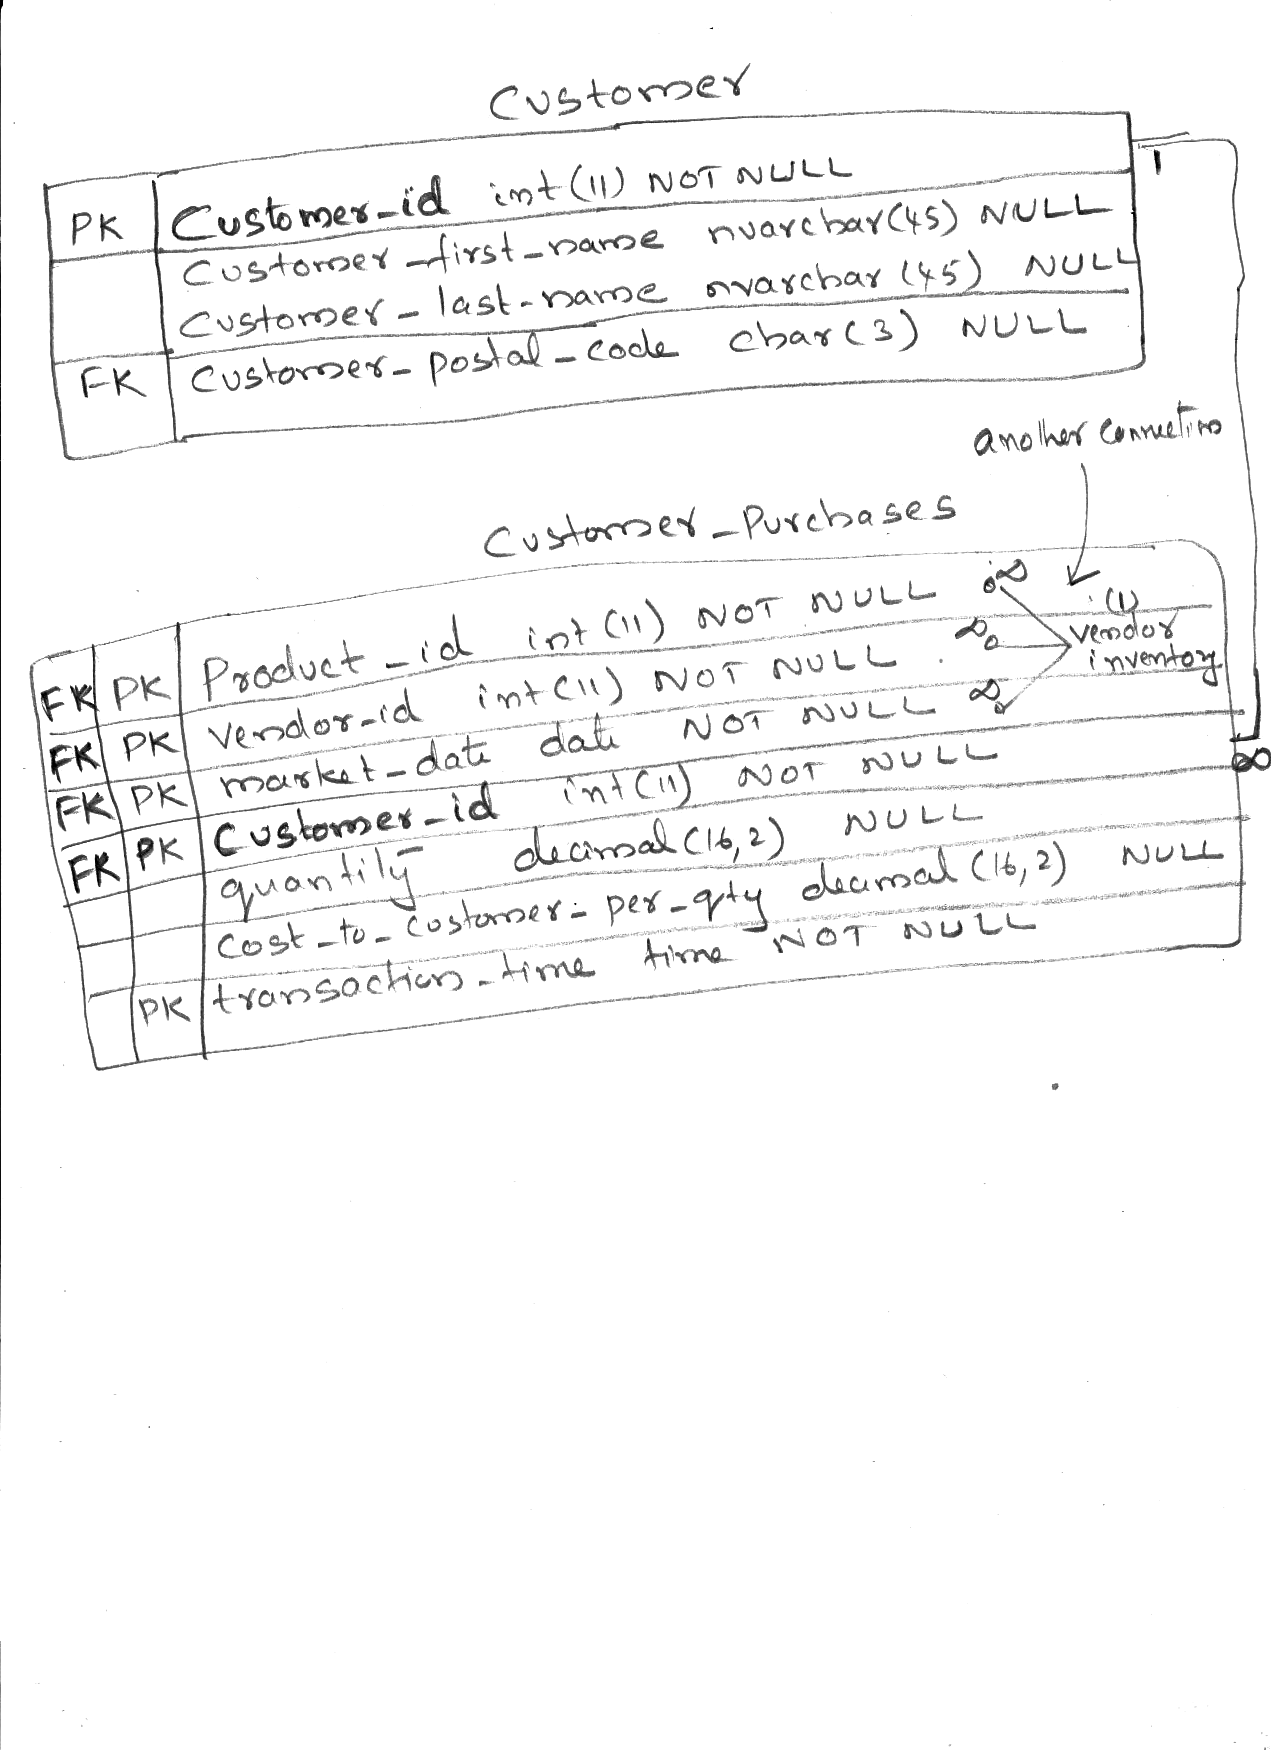 Customer
1
PK Customer_id int (11) NOT NULL
Customer_first_name nvarchar(45) NULL
Customer_last_name nvarchar (45) NULL
FK Customer_postal_code char(3) NULL
another connection
Customer_Purchases
FK PK Product_id int (11) NOT NULL ∞ (1)
FK PK vendor_id int(11) NOT NULL ∞ vendor inventory
FK PK market_date date NOT NULL ∞
FK PK Customer_id int(11) NOT NULL ∞
quantity decimal(16,2) NULL
Cost_to_customer_per_qty decimal (16,2) NULL
PK transaction_time time NOT NULL